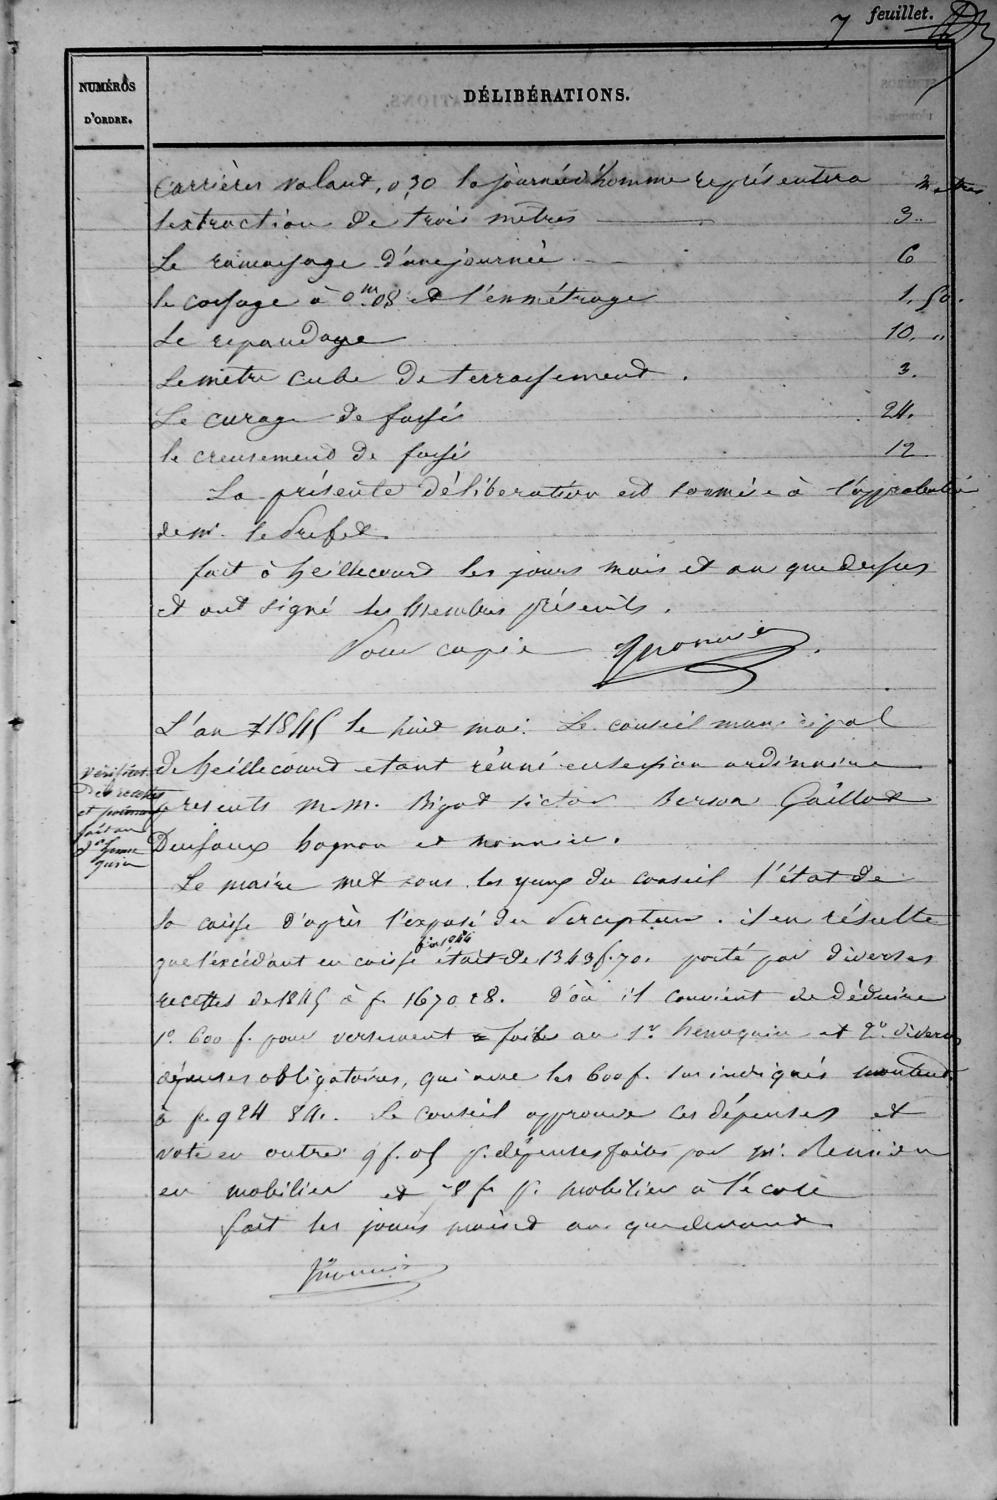 7 feuillet.
NUMÉROS
D'ORDRE.
DÉLIBÉRATIONS.
Carrières valant, 0,30 la journée d'homme représentera mètres
l'extraction de trois mètres 3 "
Le ramassage d'une journée 6
le cassage à 0m.08 et l'enmétrage 1. 50.
Le repandage 10. "
Le metre cube de terrassement. 3.
Le curage de fossés 24.
le creusement de fossés 12
La présente déliberation est soumise à l'approbation
de Mr. le Prefet
fait à heillecourt les jours mois et an que dessus
et ont signé les Membres présents.
Pour copie
L'an 1845 le huit mai. Le conseil municipal
de heillecourt etant réuni en session ordinaire
presents M.M. Bigot victor Berson Gaillot
Deufaux hognon et monnier.
vérification
des recettes
et
fait au
Sr henne
quin
Le maire met sous les yeux du conseil l'état de
la caisse d'après l'exposé du Percepteur. il en résulte
fin 1844
que l'excédant en caisse était de 1343 f. 70. porté par diverses
recettes de 1845 à f. 1670 28. d'où il convient de déduire
1° 600 f. pour versement faits au Sr. hennequin et 2° diverses
dépenses obligatoires, qui avec les 600 f. sus indiqués montent
à f. 924 84. Le conseil approuve ces dépenses et
vote en outre 9 f. 05 p. dépenses faites par Mr.
en mobilier et 8 f. p. mobilier à l'école
fait les jours mois et an que devant